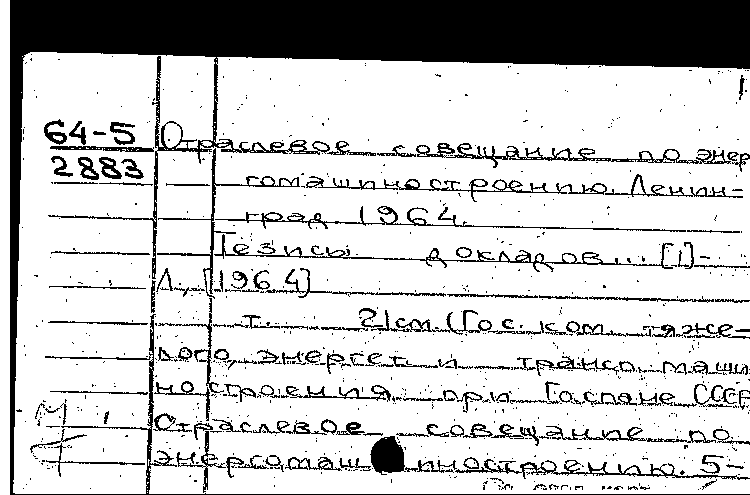 64-5 Отраслевое совещание по энер
2883
гомашиностроению. Ленин-
град. 1964.
Тезисы докладов... [1]-
Л., [1964]
т. 21см. (Гос. ком. тяже-
лого, энергет. и трансп. маши
ностроения при Госплане СССР
Отраслевое совещание по
энергомашиностроению. 5-